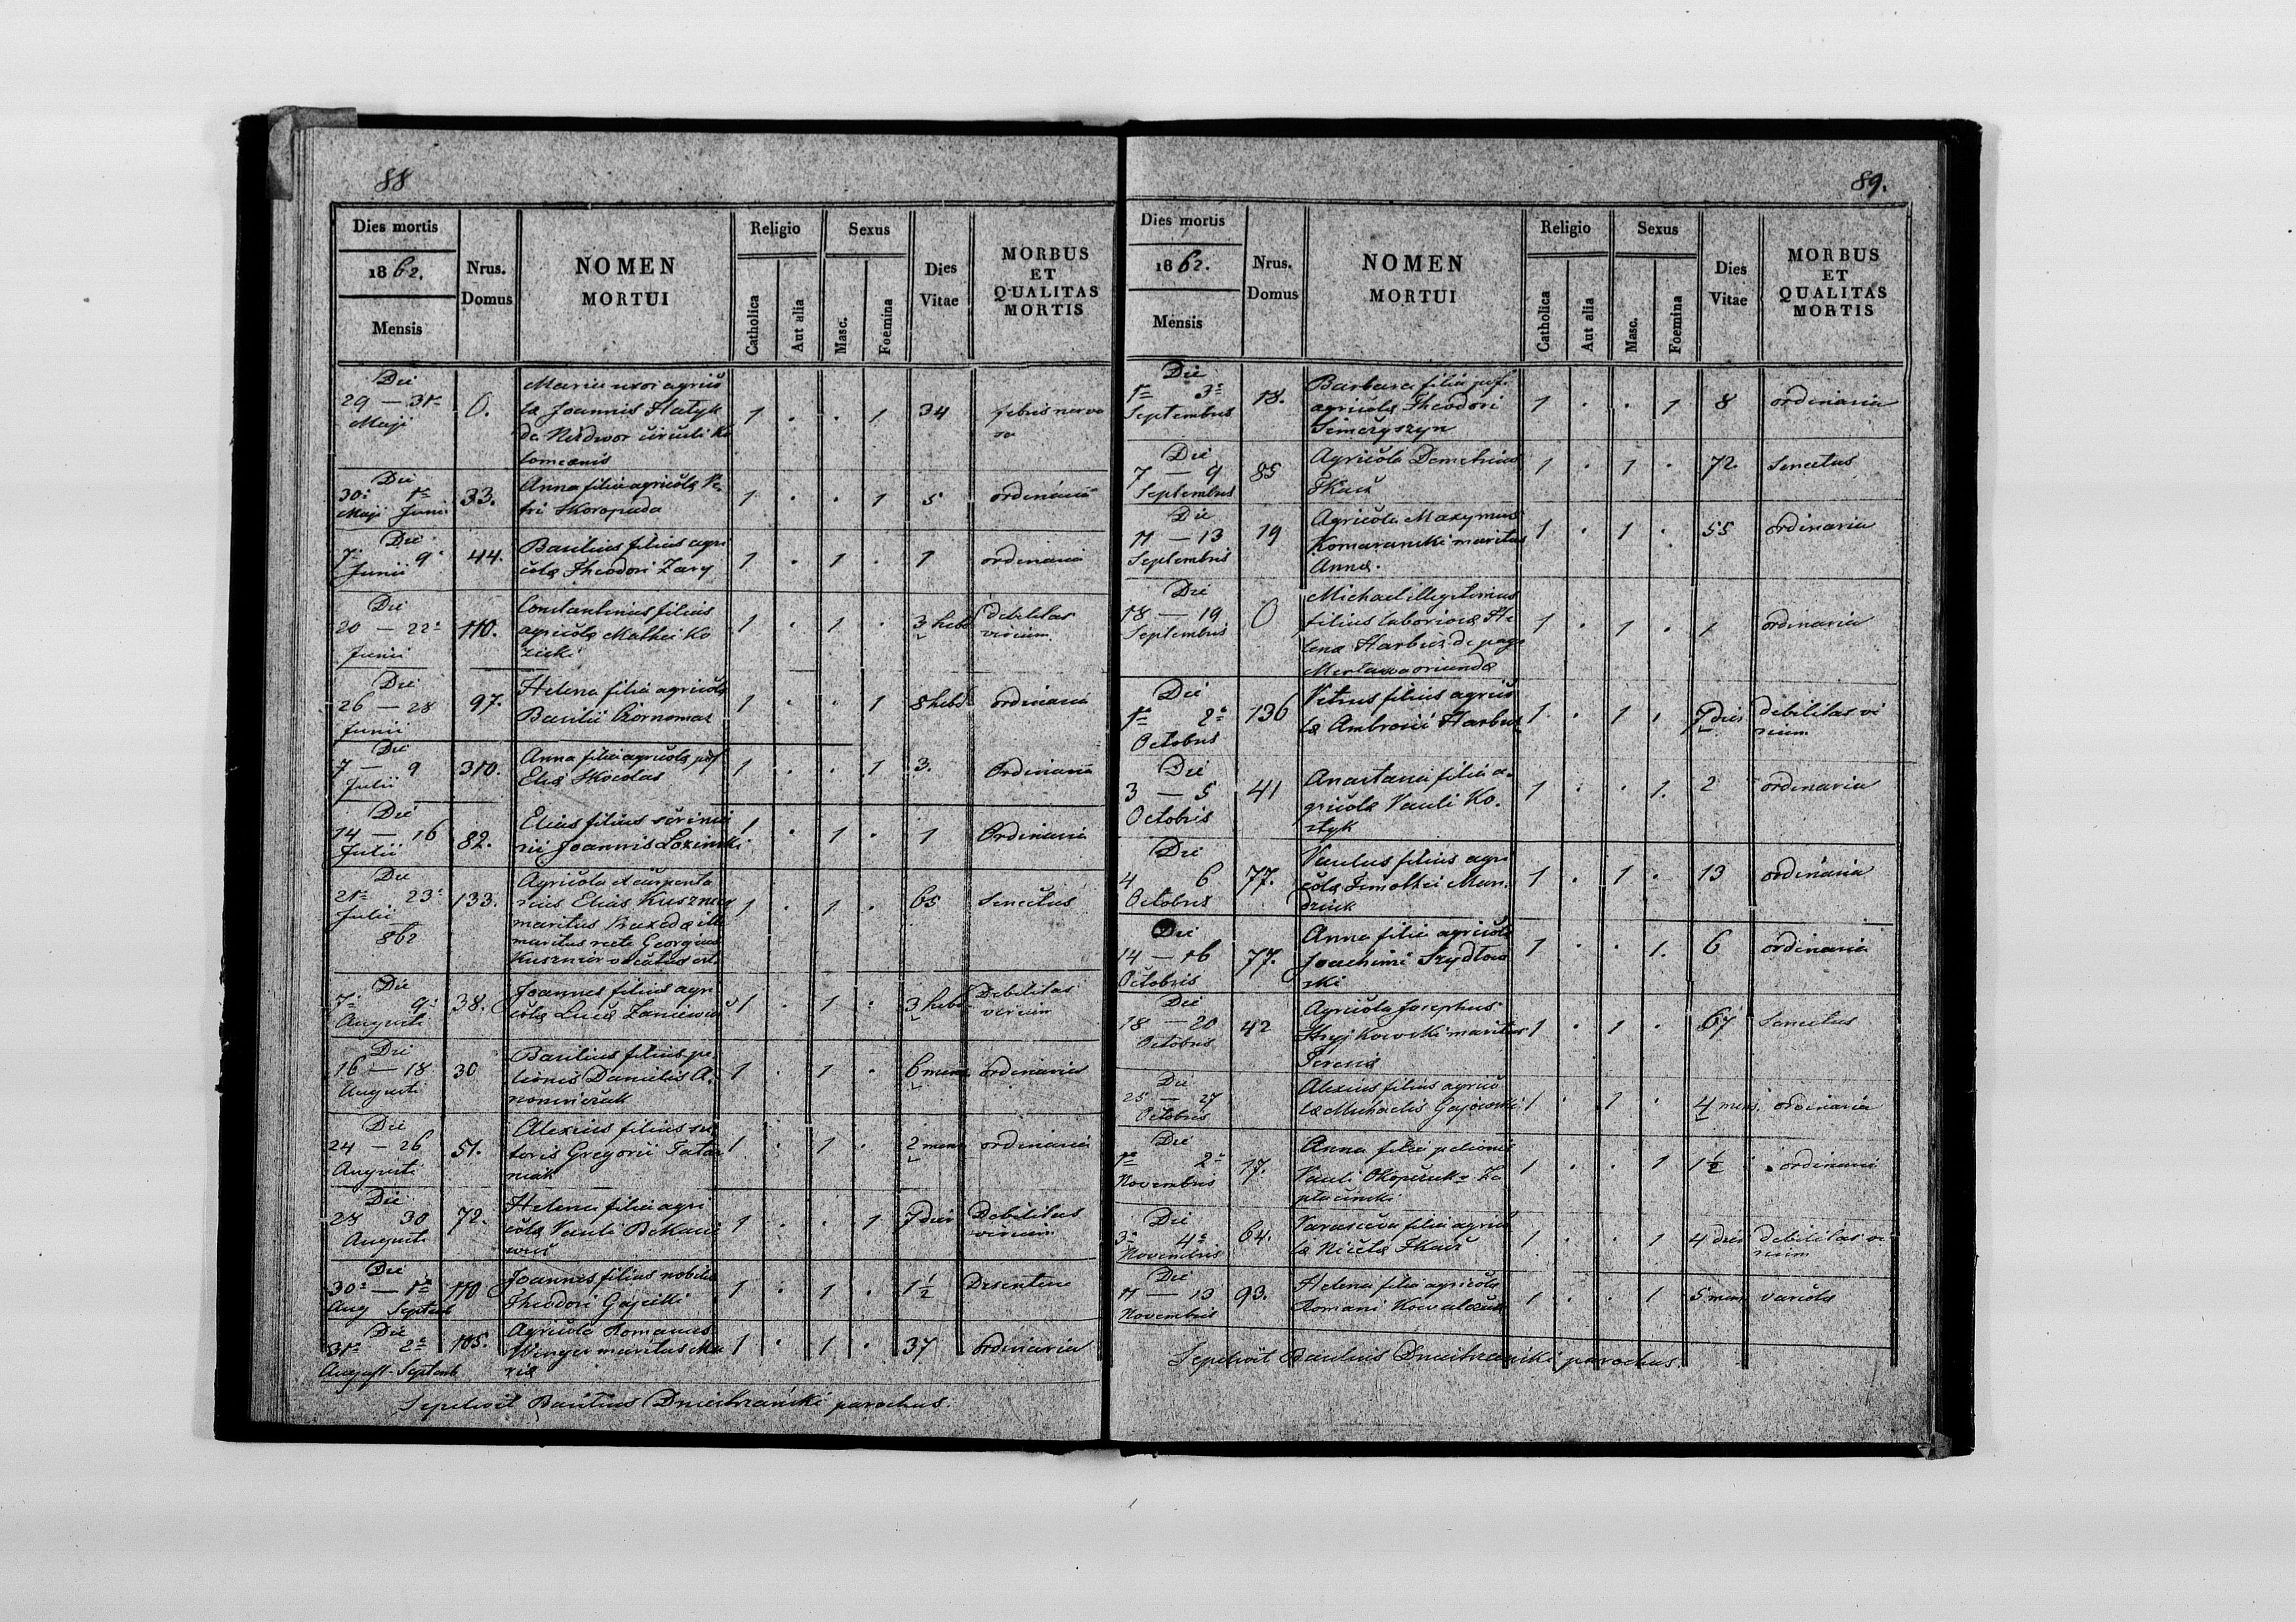 88
Dies mortis
1862.
Mensis
Nrus.
Domus
NOMEN
MORTUI
Religio
Catholica
Aut alia
Sexus
Masc.
Foemina
Dies
Vitae
MORBUS
ET
QUALITAS
MORTIS
Die
29 — 31a
Maji
0.
Maria uxor agrico
la Joannis
de circuli Ko
lomeanis
1 . . 1
34
febris nervo
sa
Die
30a 1a
Maji Junii
33.
Anna filia agricola Pe-
tri Skoropada
1 . . 1
5
ordinaria
Die
7a 9a
Junii
44.
Basilius filius agri
cola Theodori Zary
1 . 1 .
1
ordinaria
Die
20 — 22a
Junii
110.
Constantinus filius
agricola Mathei Ko
zicki
1 . 1 .
3 hebd
debilitas
virium
Die
26 — 28
Junii
97.
Helena filia agricola
Basilii Czornomaz
1 . . 1
8 hebd
ordinaria
Die
7 — 9
Julii
310.
Anna filia agricola
Elia Skocolas
1 . . 1
3.
Ordinaria
Die
14 — 16
Julii
82.
Elias filius scrinia
rii Joannis Lozinski
1 . 1 .
1
Ordinaria
Die
21a 23a
Julii
862
133.
Agricola et carpenta
rius Elias Kusznier
maritus Praxeda ille
maritus recte Georgius
Kusznier vocatus est
1 . 1 .
65
Senectus
Die
7a 9a
Augusti
38.
Joannes filius agri
cola Luca Zaniewicz
1 . 1 .
3 hebd
Debilitas
virium
Die
16 — 18
Augusti
30
Basilius filius pe-
lionis Danielis A.
1 . 1 .
6 mens
ordinaria
Die
24 — 26
Augusti
51.
Alexius filius su
toris Gregorii Tatar
niak
1 . 1 .
2 mens
ordinaria
Die
28 30
Augusti
72.
Helena filia agri
cola Pauli
1 . . 1
7 dies
Debilitas
virium
Die
30a — 1a
Aug Septemb
110
Joannes filius nobilis
Theodori
1 . 1 .
1½
Desenteria
Die
31a 2a
August-Septemb
105.
Agricola Romanus
maritus Ma
ria
1 . 1 .
37
Ordinaria
Sepelivit Basilius Dniestrzański parochus.
89.
Dies mortis
1862.
Mensis
Nrus.
Domus
NOMEN
MORTUI
Religio
Catholica
Aut alia
Sexus
Masc.
Foemina
Dies
Vitae
MORBUS
ET
QUALITAS
MORTIS
Die
1a 3a
Septembris
18.
Barbara filia
agricola Theodori
Semczyszyn
1 . . 1
8
ordinaria
Die
7 — 9
Septembris
85
Agricola Demetrius
Tkacz
1 . 1 .
72
Senectus
Die
11 — 13
Septembris
19
Agricola Maxymus
Komaranski maritus
Anna.
1 . 1 .
55
ordinaria
Die
18 — 19
Septembris
0
Michael illegitimus
filius He
lena Harbuz de pago
oriunda
1 . 1 .
1
ordinaria
Die
1a 2a
Octobris
136
Petrus filius agrico
la Ambrosii Harbuz
1 . 1 .
7 dies
debilitas vi
rium
Die
3 — 5
Octobris
41
Anastasia filia a-
gricola Pauli Ko-
styk
1 . . 1.
2
ordinaria
Die
4 6
Octobris
77.
Paulus filius agri
cola Timothei Man
dziuk
1 . 1 .
13
ordinaria
Die
14 — 16
Octobris
77.
Anna filia agricola
Joachimi Szydlow
ski
1 . . 1.
6
ordinaria
Die
18 — 20
Octobris
42
Agricola Josephus
Stryjkowski maritus
1 . 1 .
67
Senectus
Die
25 — 27
Octobris
Alexius filius agrico
la Michaelis Gajowski
1 . 1 .
4 mens.
ordinaria
Die
1a 2a
Novembris
17.
Anna filia pelionis
Pauli
1 . . 1
1½
ordinaria
Die
3a 4a
Novembris
64.
Parasceva filia agrico
la Niceta Tkacz
1 . . 1
4 dies
debilitas vi
rium
Die
11 — 13
Novembris
93.
Helena filia agricola
Romani Kowalczuk
1 . . 1
5 mens
variola
Sepelivit Basilius Dniestrzański parochus.